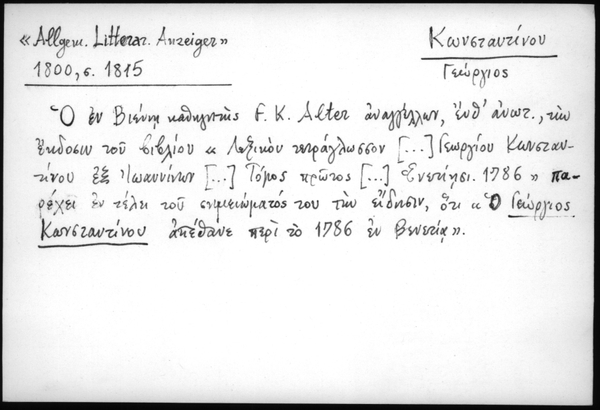 «Allgem. Litterar. Anzeiger»
Κωνσταντίνου
1800, σ. 1815
Γεώργιος
Ὁ ἐν Βιέννῃ καθηγητὴς F. K. Alter ἀναγγέλλων, ἔνθ' ἀνωτ., τὴν
ἔκδοσιν τοῦ βιβλίου « Λεξικὸν τετράγλωσσον [...] Γεωργίου Κωνσταν-
τίνου ἐξ Ἰωαννίνων [...] Τόμος πρῶτος [...] Ἐνετίῃσι. 1786 » πα-
ρέχει ἐν τέλει τοῦ σημειώματός του τὴν εἴδησιν, ὅτι « Ὁ Γεώργιος
Κωνσταντίνου ἀπέθανε περὶ τὸ 1786 ἐν Βενετίᾳ».